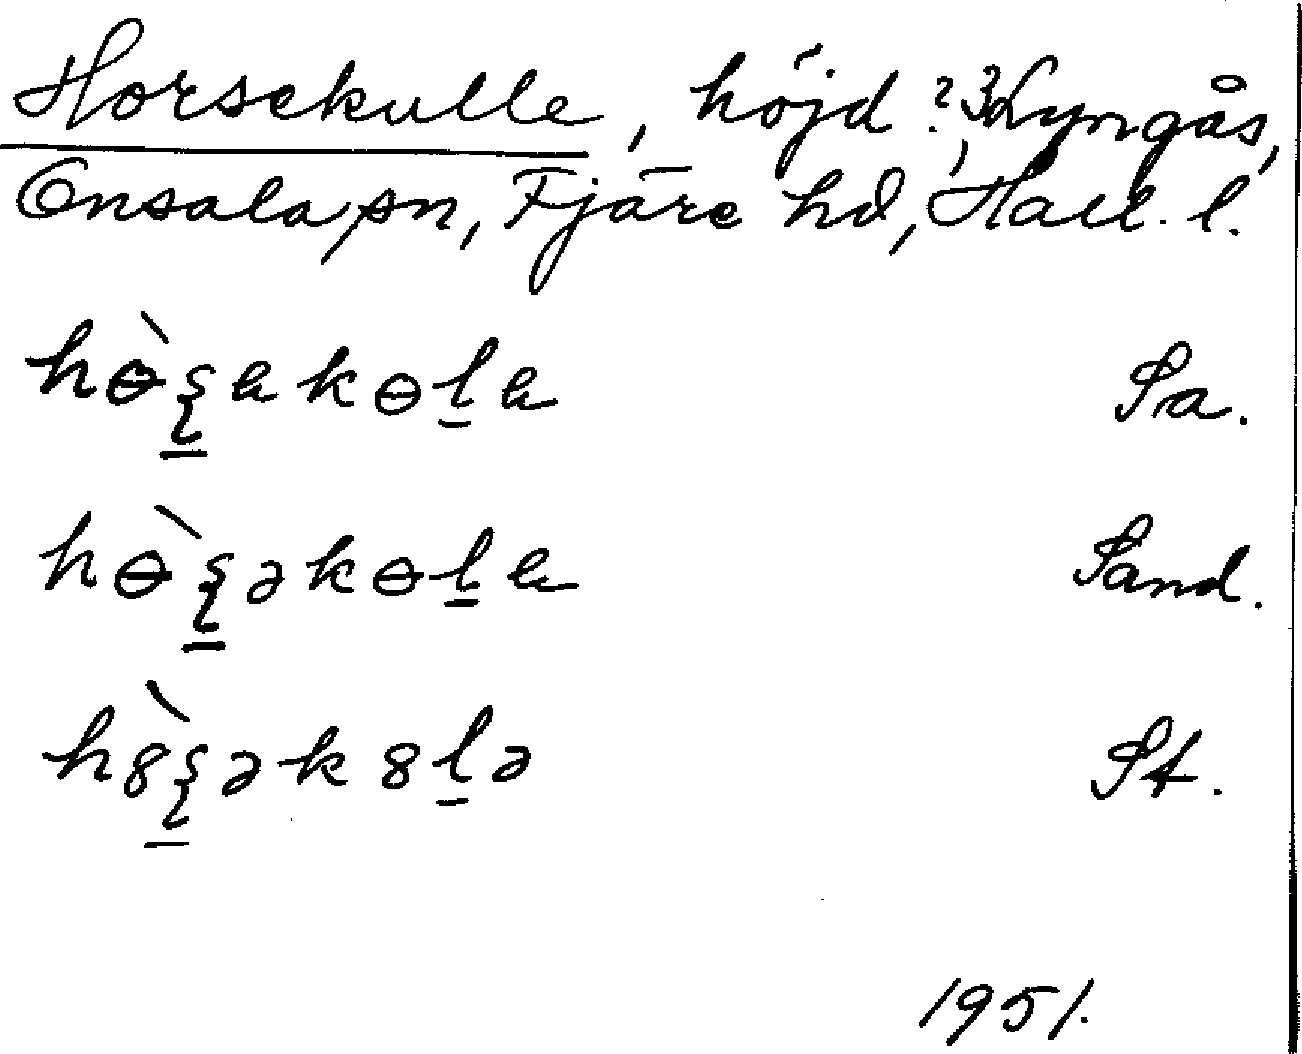 Horsekulle, höjd ?, 3 Lyngås,
Onsala sn, Fjäre hd, Hall. l.
hɵ̀ʂ̱ak ɵḻa Sa.
hɵ̀ʂ̱əkɵḻa Sand.
h8̀ʂ̱ək8ḻə St.
1951.